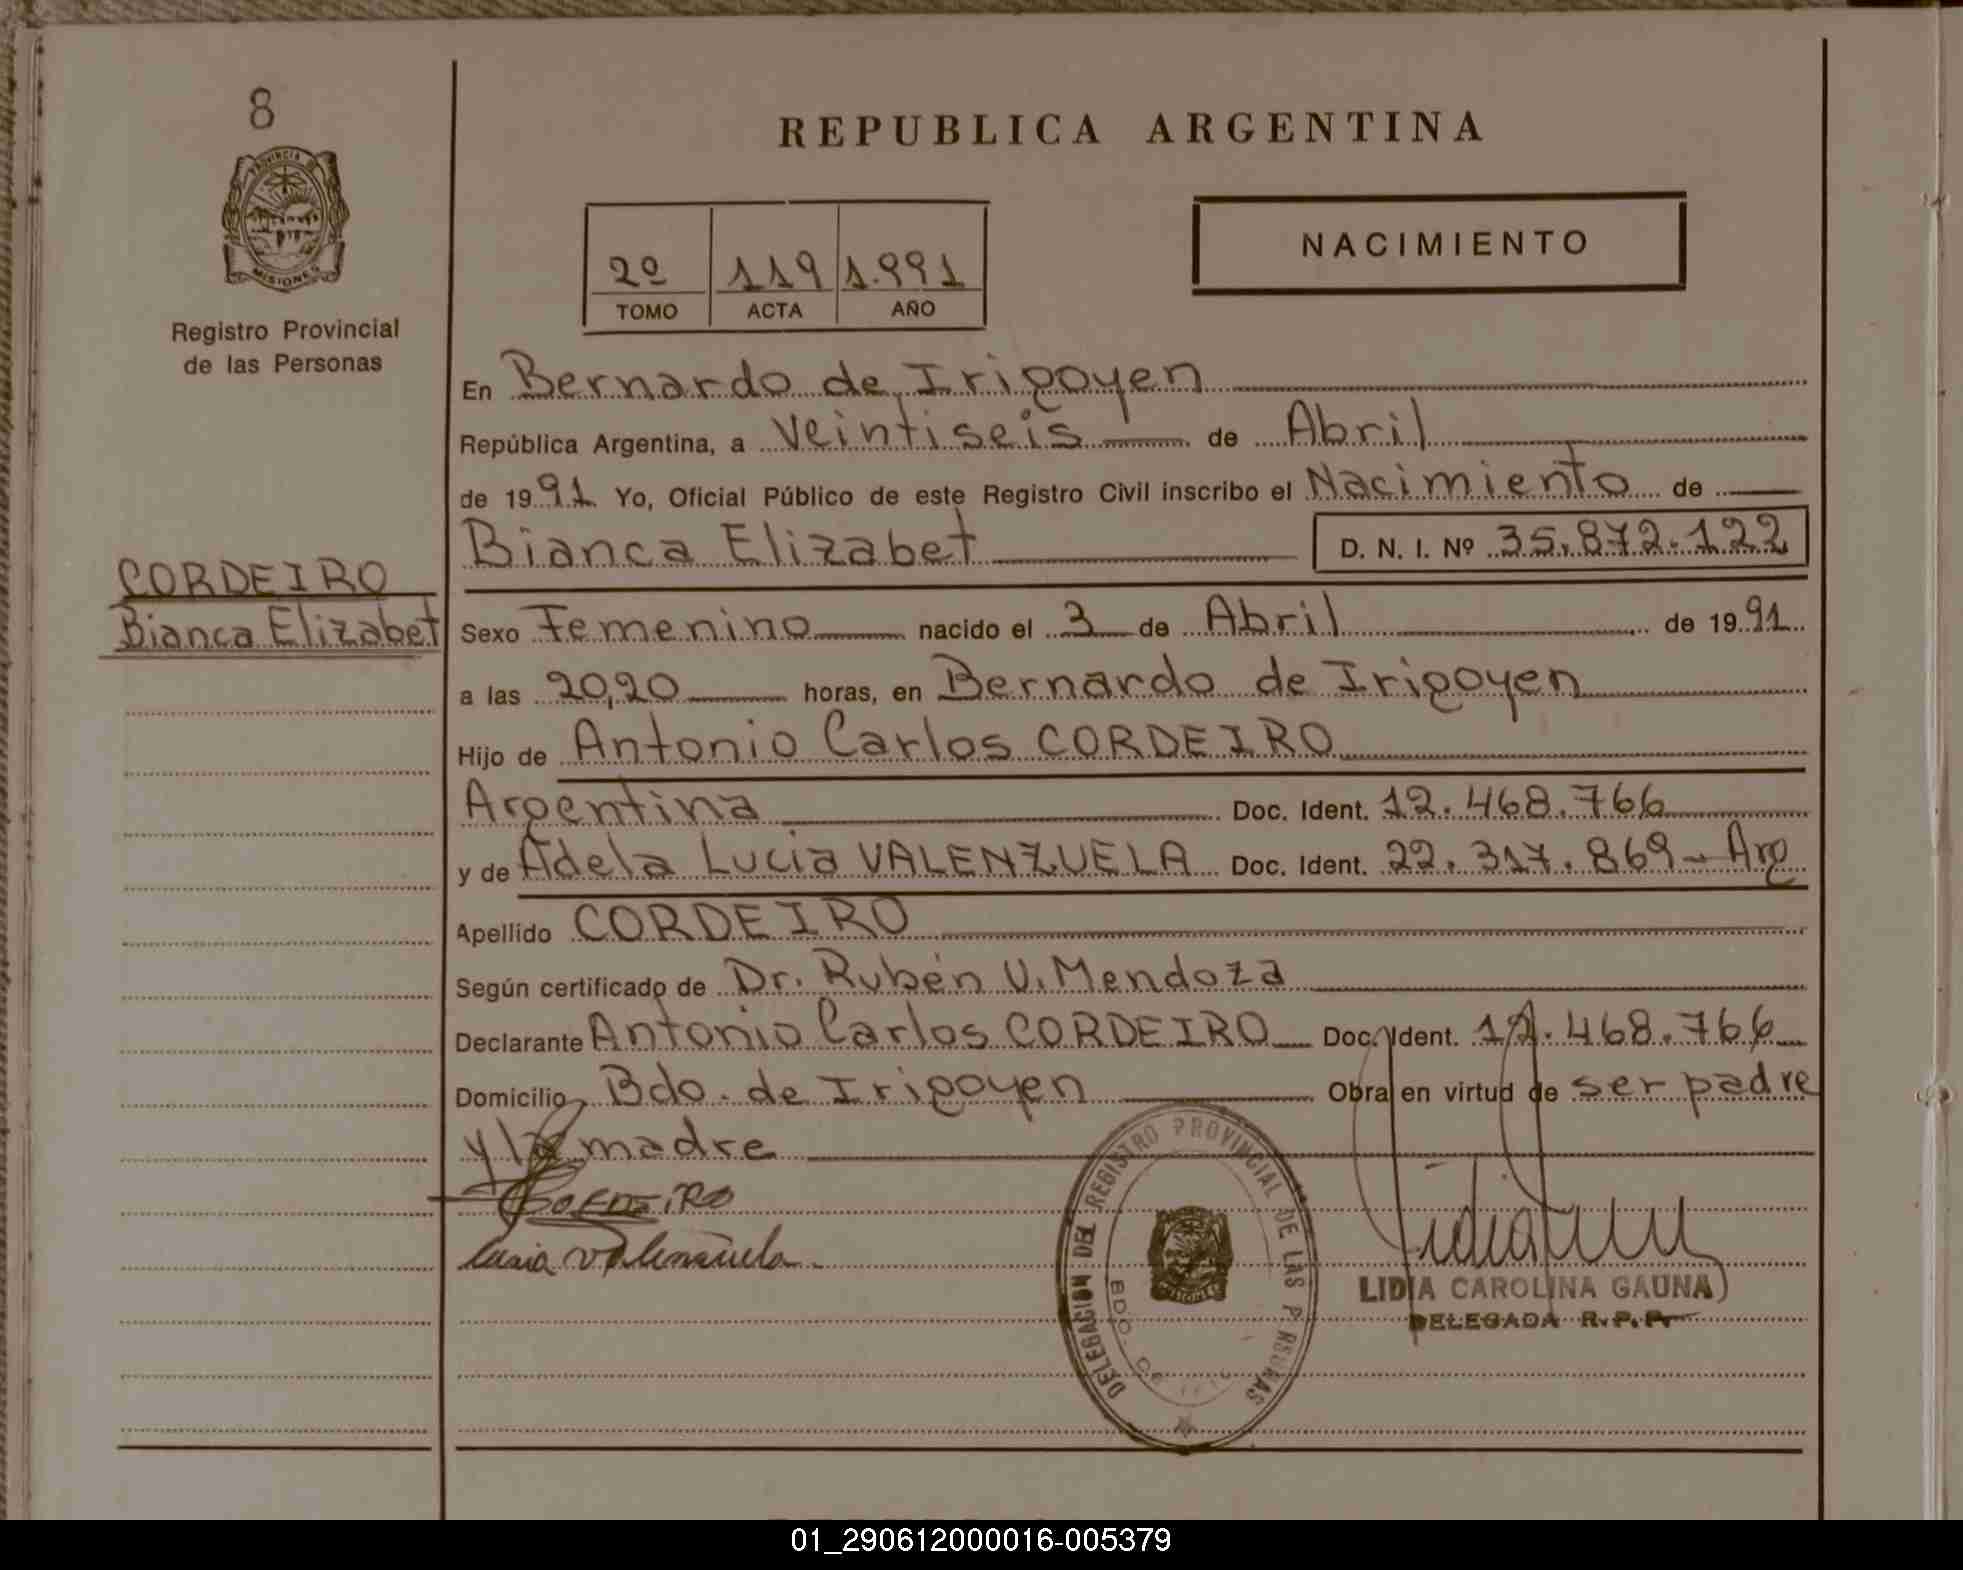 8
PROVINCIA D
MISIONES
Registro Provincial
de las Personas
CORDEIRO
Bianca Elizabet
REPUBLICA ARGENTINA
NACIMIENTO
2º 119 1.991
TOMO ACTA AÑO
En Bernardo de Irigoyen
República Argentina, a Veintiseis de Abril
de 1991 Yo, Oficial Público de este Registro Civil inscribo el Nacimiento de
Bianca Elizabet D. N. I. Nº 35.872.122
Sexo Femenino nacido el 3 de Abril de 1991
a las 20,20 horas, en Bernardo de Irigoyen
Hijo de Antonio Carlos CORDEIRO
Argentina Doc. Ident. 12.468.766
y de Adela Lucia VALENZUELA Doc. Ident. 22.317.869 - Arg
Apellido CORDEIRO
Según certificado de Dr. Rubén V. Mendoza
Declarante Antonio Carlos CORDEIRO Doc. Ident. 12.468.766
Domicilio Bdo. de Irigoyen Obra en virtud de ser padre
y la madre
CORDEIRO
Lucia Valenzuela
DELEGACION DEL REGISTRO PROVINCIAL DE LAS P RSONAS
BDO. DE
MISIONES
LIDIA CAROLINA GAUNA
DELEGADA R.P.P.
01_290612000016-005379